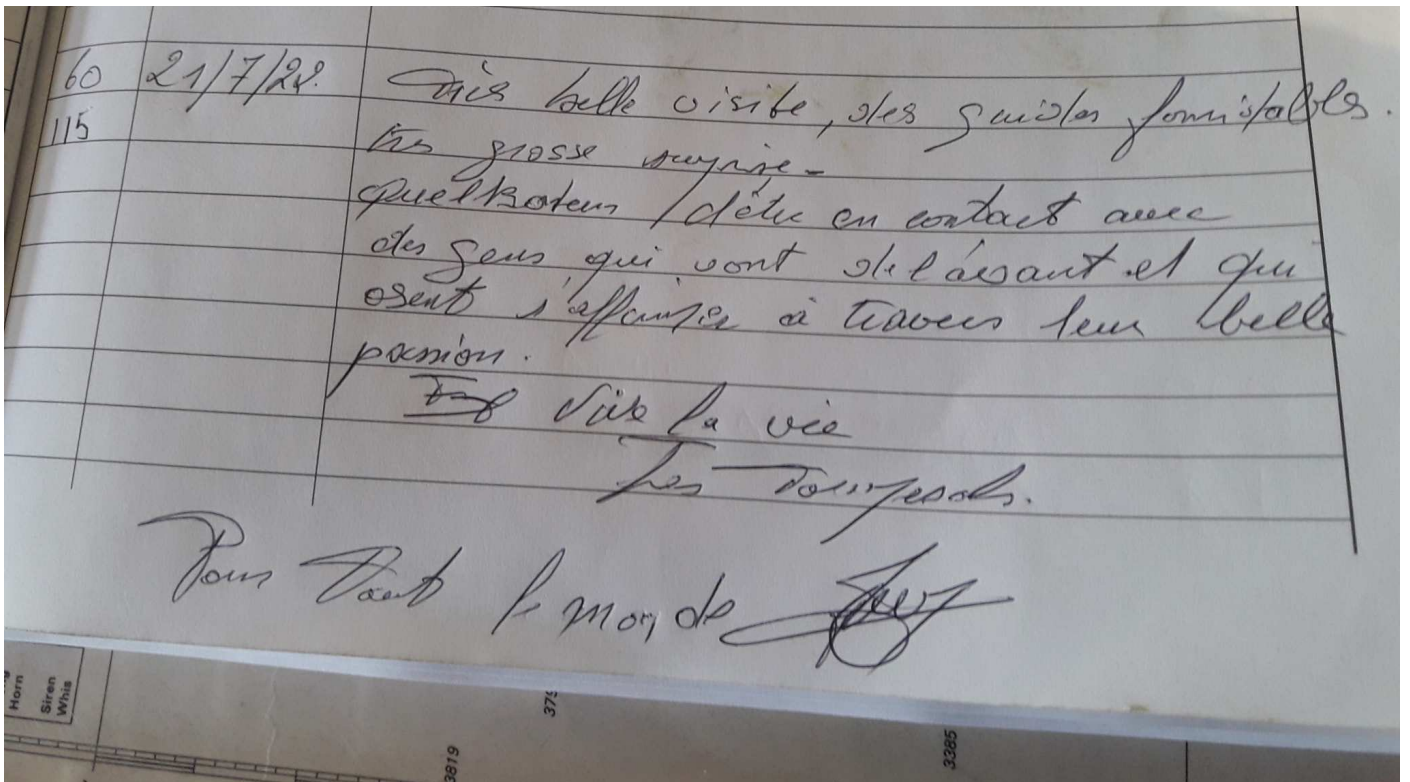 60 21/7/22. Très belle visite, des guides formidables.
115 très grosse surprise -
quel bonheur d'être en contact avec
des gens qui vont de l'avant et qui
osent s'affirmer à travers leur belle
passion.
Vive la vie
Les Tournesols.
Pour Tout le monde
Horn
Siren
Whis
375
3819
3385